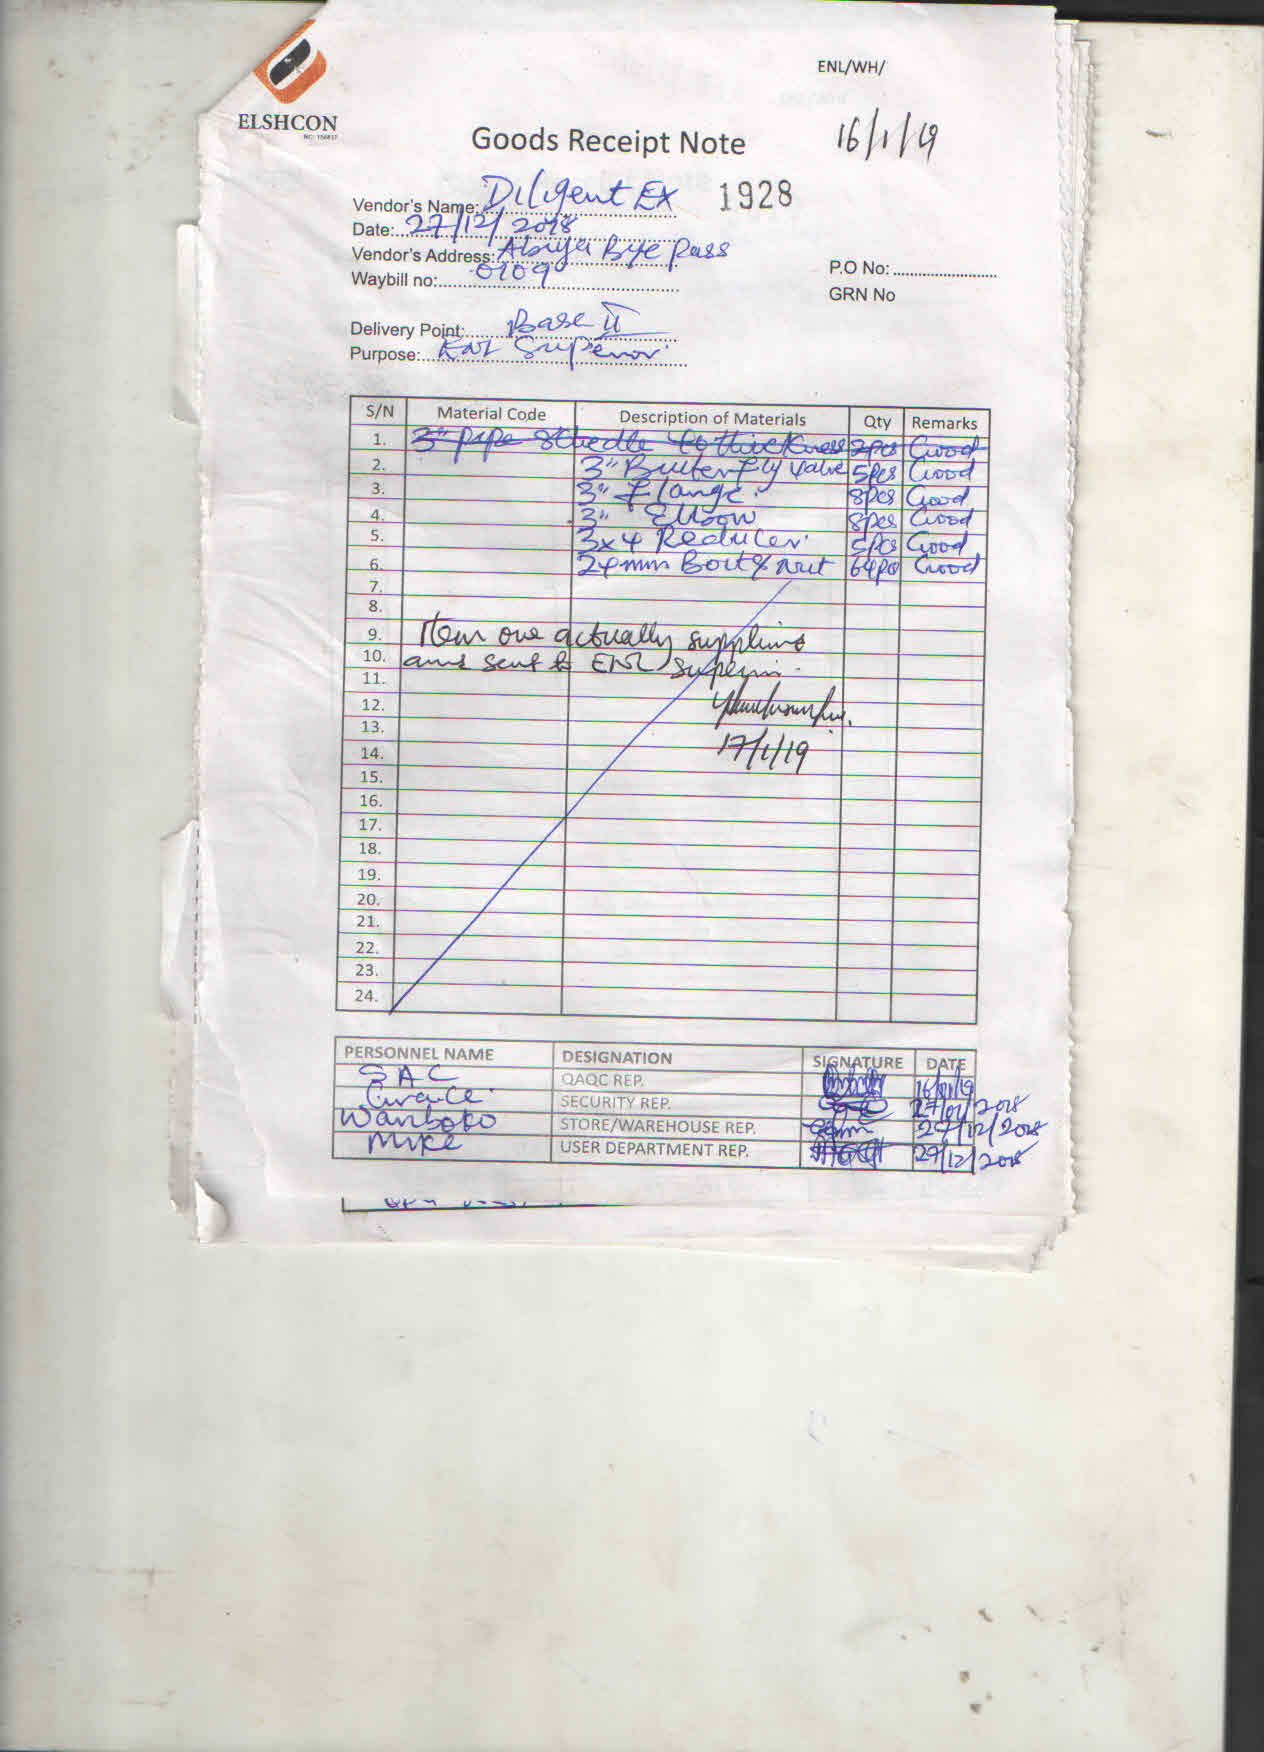 ELSHCON
ENL/WH/
Goods Receipt Note
16/1/19
Vendor's Name: Diligent EX
1928
Date: 27/12/2018
Vendor's Address: Abuja Bye pass
Waybill no: 0109
P.O No:
GRN No
Delivery Point: Base II
Purpose: ENL Superior
S/N Material Code Description of Materials Qty Remarks
1. 3" pipe Schedle 40 thickness 2pcs Good
2. 3" Butterfly valve 5pcs Good
3. 3" flange 8pcs Good
4. 3" Elbow 8pcs Good
5. 3x4 Reducer 5pcs Good
6. 24mm Bolt & Nut 64pcs Good
7.
8.
9. Item one actually supplied
10. and sent to ENL superior
11.
12.
13.
14. 17/1/19
15.
16.
17.
18.
19.
20.
21.
22.
23.
24.
PERSONNEL NAME DESIGNATION SIGNATURE DATE
SAC QAQC REP. 16/01/19
Grace SECURITY REP. 2018
Wariboko STORE/WAREHOUSE REP. 27/12/2018
Mike USER DEPARTMENT REP. 29/12/2018